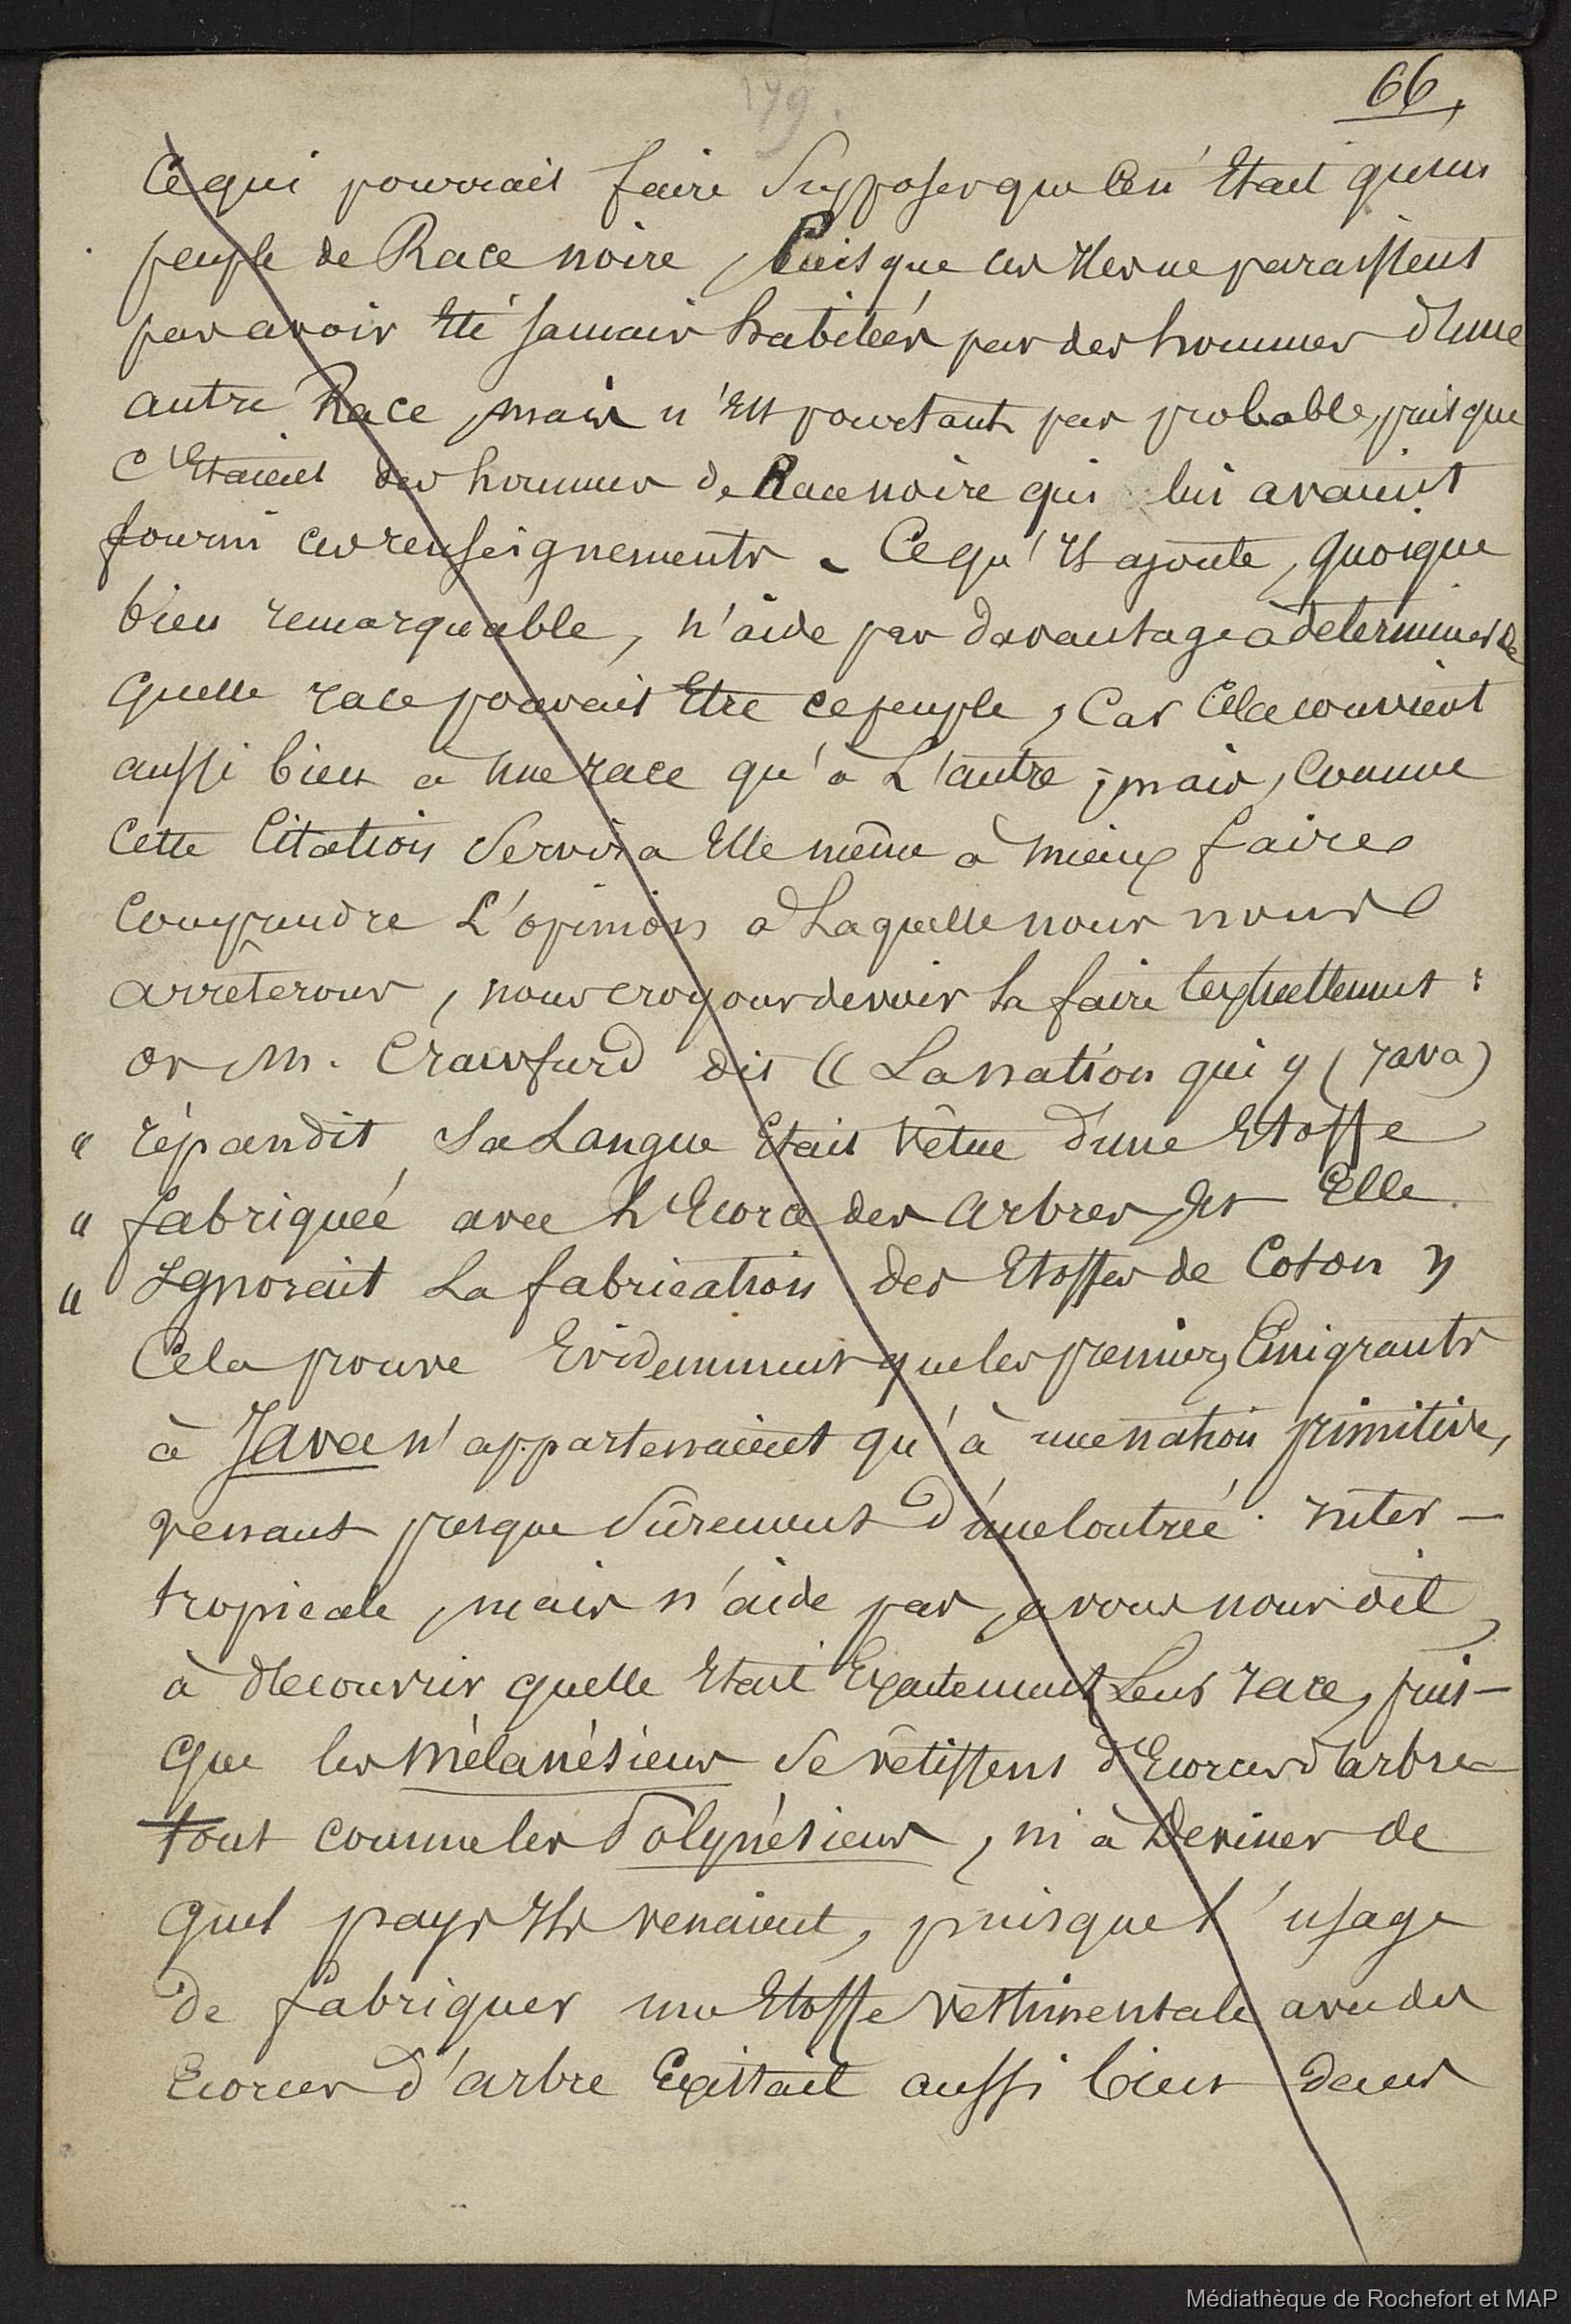 179.
66,
Ce qui pourrait faire supposer que ce n'était qu'un
peuple de Race noire, Puisque ces Iles ne paraissent
pas avoir été jamais habitées par des hommes d'une
autre Race, mais n'est pourtant pas probable, puisque
c'étaient des hommes de Race noire qui lui avaient
fourni ces renseignements. Ce qu'il ajoute, quoique
bien remarquable, n'aide pas davantage à déterminer de
quelle race pouvait Etre ce peuple, Car Cela convient
aussi bien à une race qu'à L'autre ; mais, Comme
Cette Citation servira Elle même à mieux faire
Comprendre L'opinion à Laquelle nous nous
arrêterons, nous croyons devoir la faire textuellement :
or M. Crawfurd dit « La nation qui y (Java)
" répandit sa Langue Etait vêtue d'une Etoffe
" fabriquée avec L'Ecorce des arbres, et Elle
" Ignorait La fabrication des Etoffes de Coton »
Cela prouve Evidemment que les premiers Emigrants
à Java n'appartenaient qu'à une nation primitive,
venant presque sûrement d'une Contrée inter-
tropicale, mais n'aide pas, avons nous dit,
à découvrir quelle Etait Exactement Leur race, puis-
que les Mélanésiens se vêtissent d'Ecorces d'arbre
tout comme les Polynésiens, ni à Deviner de
quel pays Ils venaient, puisque l'usage
de fabriquer une Etoffe vestimentale avec des
Ecorces d'arbre Existait aussi bien dans
Médiathèque de Rochefort et MAP